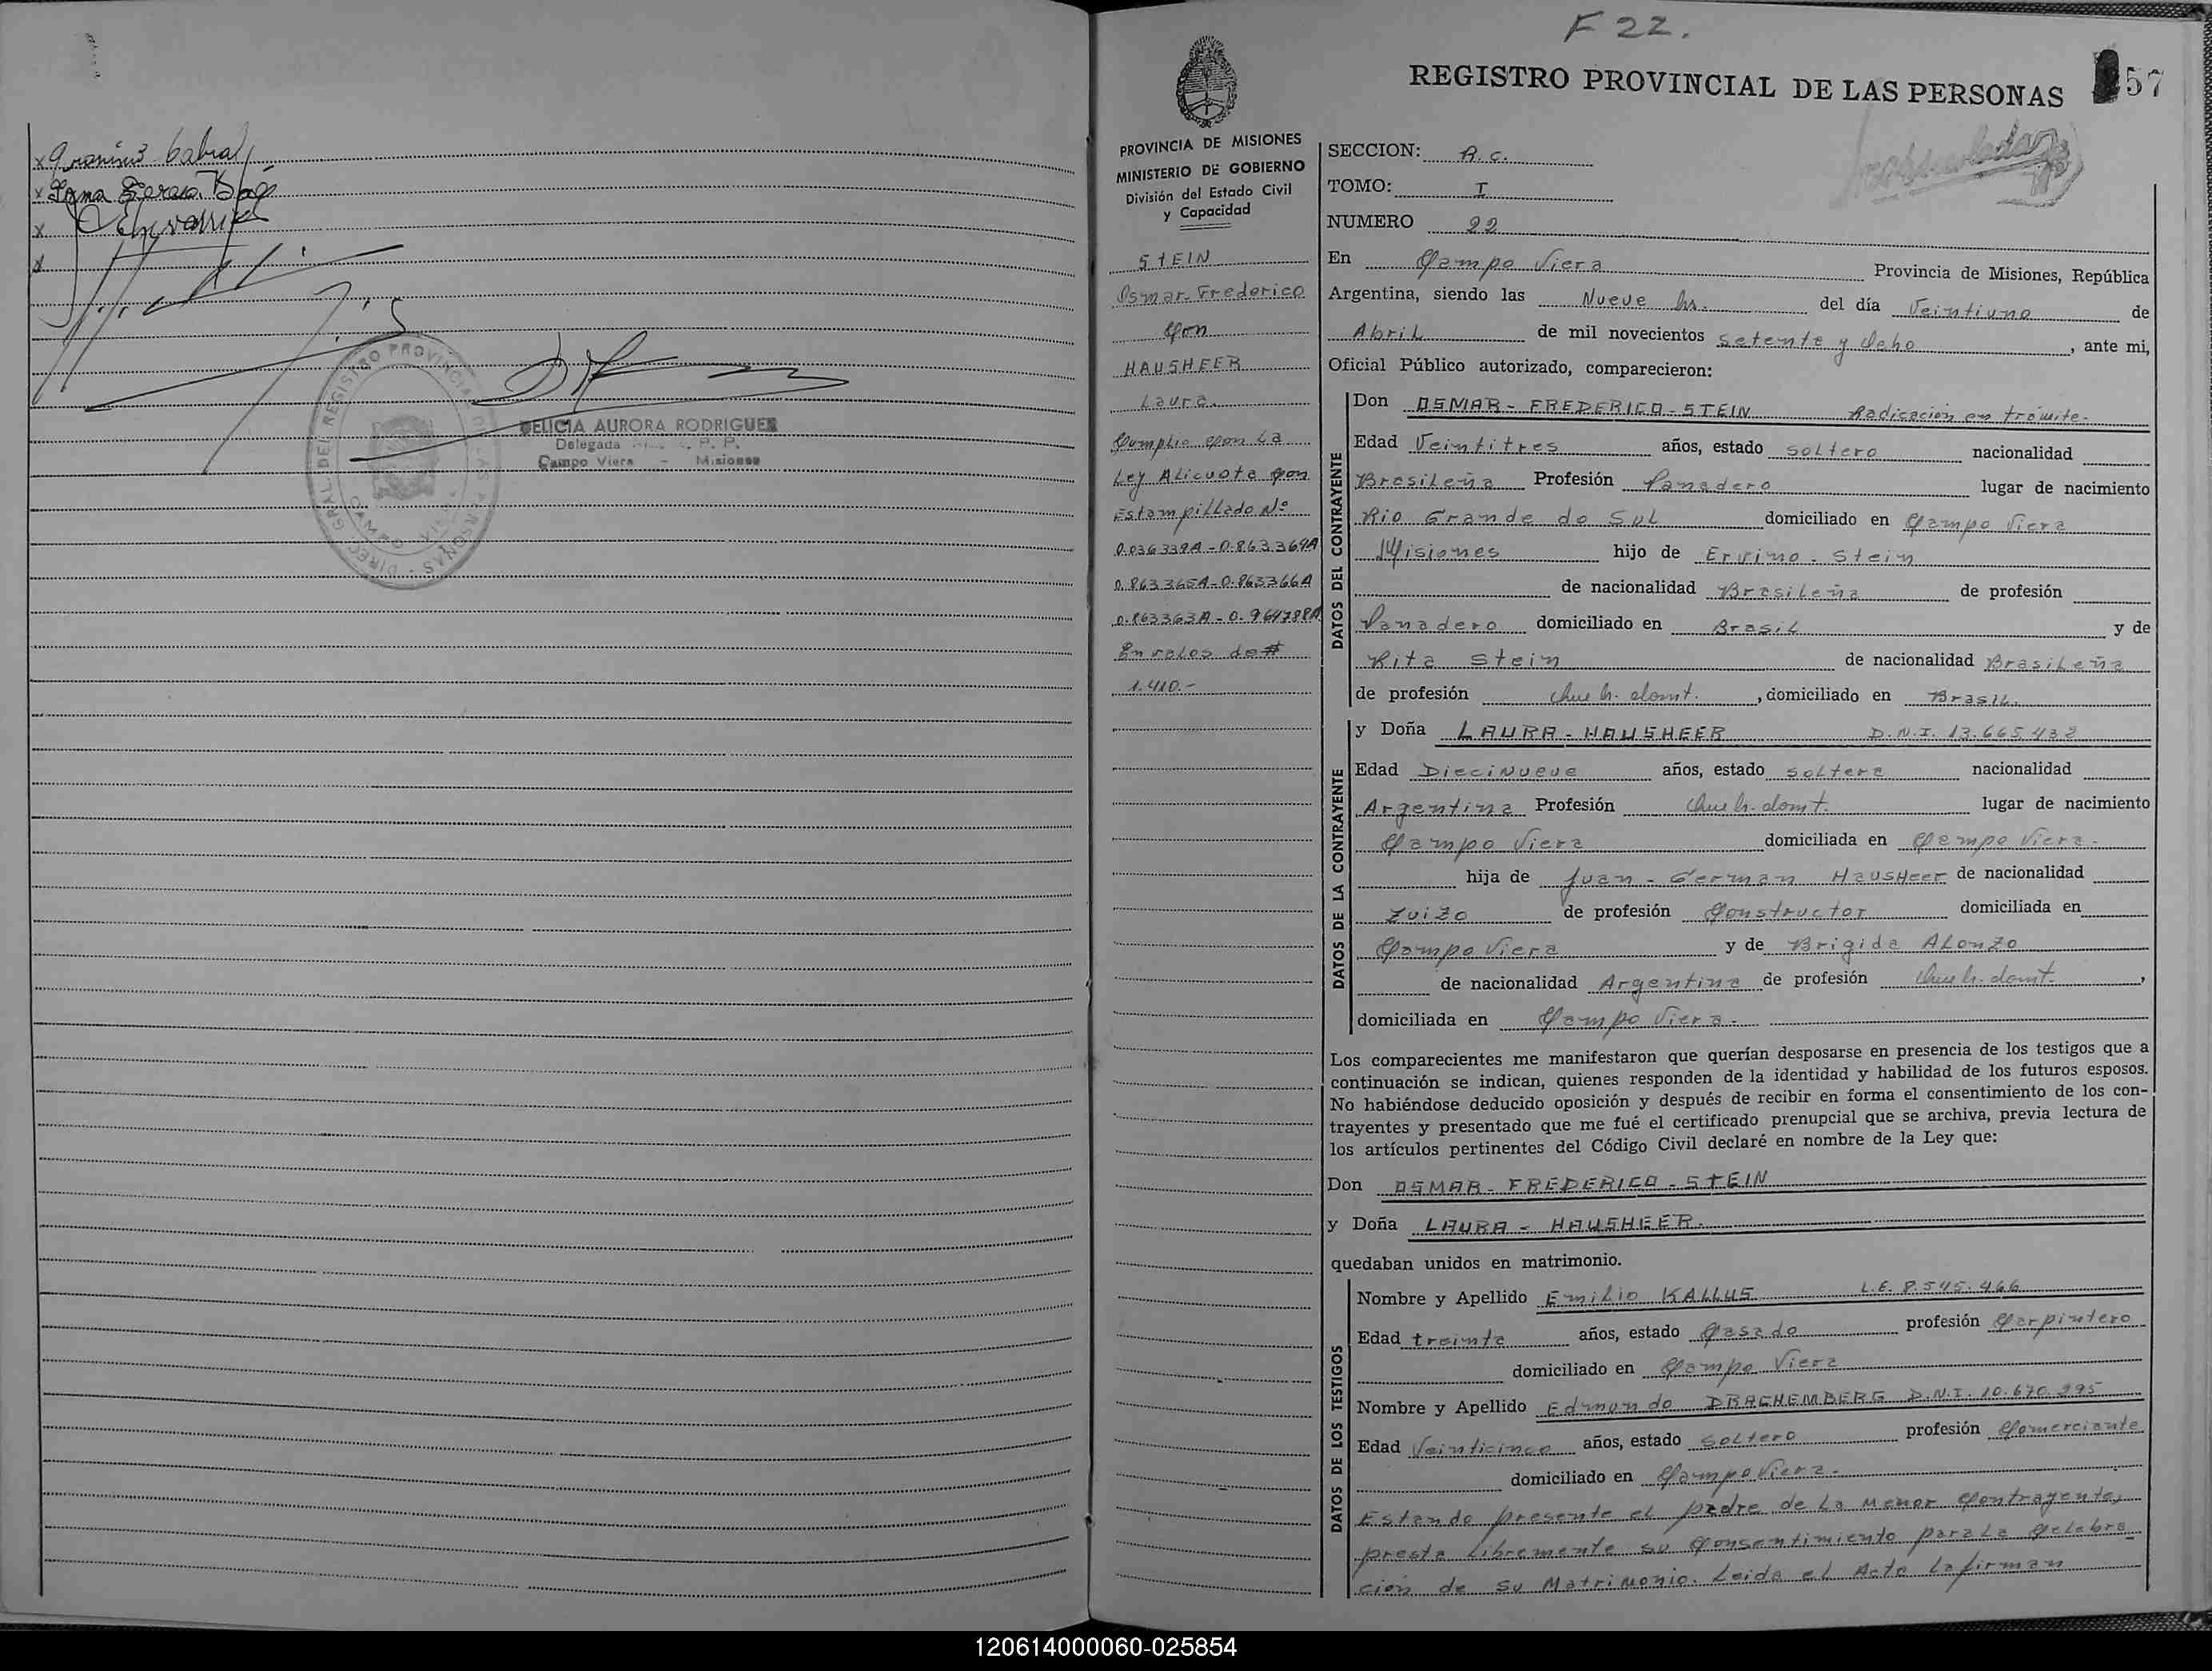 x Geronimo Cabral
x Irma Teresa
x Echevarria
x
DIREC. GRAL. DEL REGISTRO PROVINCIAL DE LAS PERSONAS
CAMPO VIERA
DELICIA AURORA RODRIGUEZ
Delegada R. P. P.
Campo Viera - Misiones
F 22.
REGISTRO PROVINCIAL DE LAS PERSONAS
57
PROVINCIA DE MISIONES
MINISTERIO DE GOBIERNO
División del Estado Civil
y Capacidad
STEIN
Osmar Frederico
Con
HAUSHEER
Laura.
Cumplio con La
Ley Alicuota con
Estampillado Nº
0.036339A - 0.863.364A
0.863365A - 0.863366A
0.863363A - 0.964788A
En valos de #
1.410.-
SECCION: A.C.
TOMO: I
NUMERO 22
En Campo Viera Provincia de Misiones, República
Argentina, siendo las Nueve hs. del día Veintiuno de
Abril de mil novecientos setenta y Ocho, ante mi,
Oficial Público autorizado, comparecieron:
DATOS DEL CONTRAYENTE
Don OSMAR - FREDERICO - STEIN Radicación en tramite.
Edad Veintitres años, estado soltero nacionalidad
Brasileña Profesión Panadero lugar de nacimiento
Rio Grande do Sul domiciliado en Campo Viera
Misiones hijo de Ervino - Stein
de nacionalidad Brasileña de profesión
Panadero domiciliado en Brasil y de
Rita Stein de nacionalidad Brasileña
de profesión Queh. domt., domiciliado en Brasil.
DATOS DE LA CONTRAYENTE
y Doña LAURA - HAUSHEER D.N.I. 13.665.432
Edad Diecinueve años, estado soltera nacionalidad
Argentina Profesión Queh. domt. lugar de nacimiento
Campo Viera domiciliada en Campo Viera.
hija de Juan - German Hausheer de nacionalidad
Zuizo de profesión Constructor domiciliada en
Campo Viera y de Brigida Alonzo
de nacionalidad Argentina de profesión Queh. domt.,
domiciliada en Campo Viera.-
Los comparecientes me manifestaron que querían desposarse en presencia de los testigos que a
continuación se indican, quienes responden de la identidad y habilidad de los futuros esposos.
No habiéndose deducido oposición y después de recibir en forma el consentimiento de los con-
trayentes y presentado que me fué el certificado prenupcial que se archiva, previa lectura de
los artículos pertinentes del Código Civil declaré en nombre de la Ley que:
Don OSMAR - FREDERICO - STEIN
y Doña LAURA - HAUSHEER.
quedaban unidos en matrimonio.
DATOS DE LOS TESTIGOS
Nombre y Apellido Emilio KALLUS L.E. 8.545.466
Edad treinta años, estado Casado profesión Carpintero
domiciliado en Campo Viera
Nombre y Apellido Edmundo DRACHEMBERG D.N.I. 10.670.295
Edad Veinticinco años, estado soltero profesión Comerciante
domiciliado en Campo Viera.
Estando presente el padre de La Menor Contrayente,
presta Libremente su Consentimiento para La Celebra-
ción de su Matrimonio. Leida el Acta la firman
120614000060-025854